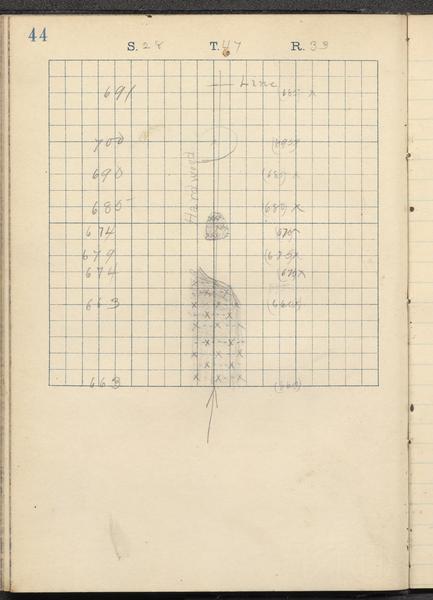 44
S. 28 T. 47 R. 33
Line
691 685 x
700 (695)
Hardwood
690 (685)
685 (680) x
674 (675)
679 (675) x
674 (670) x
663 (660)
663 (660)